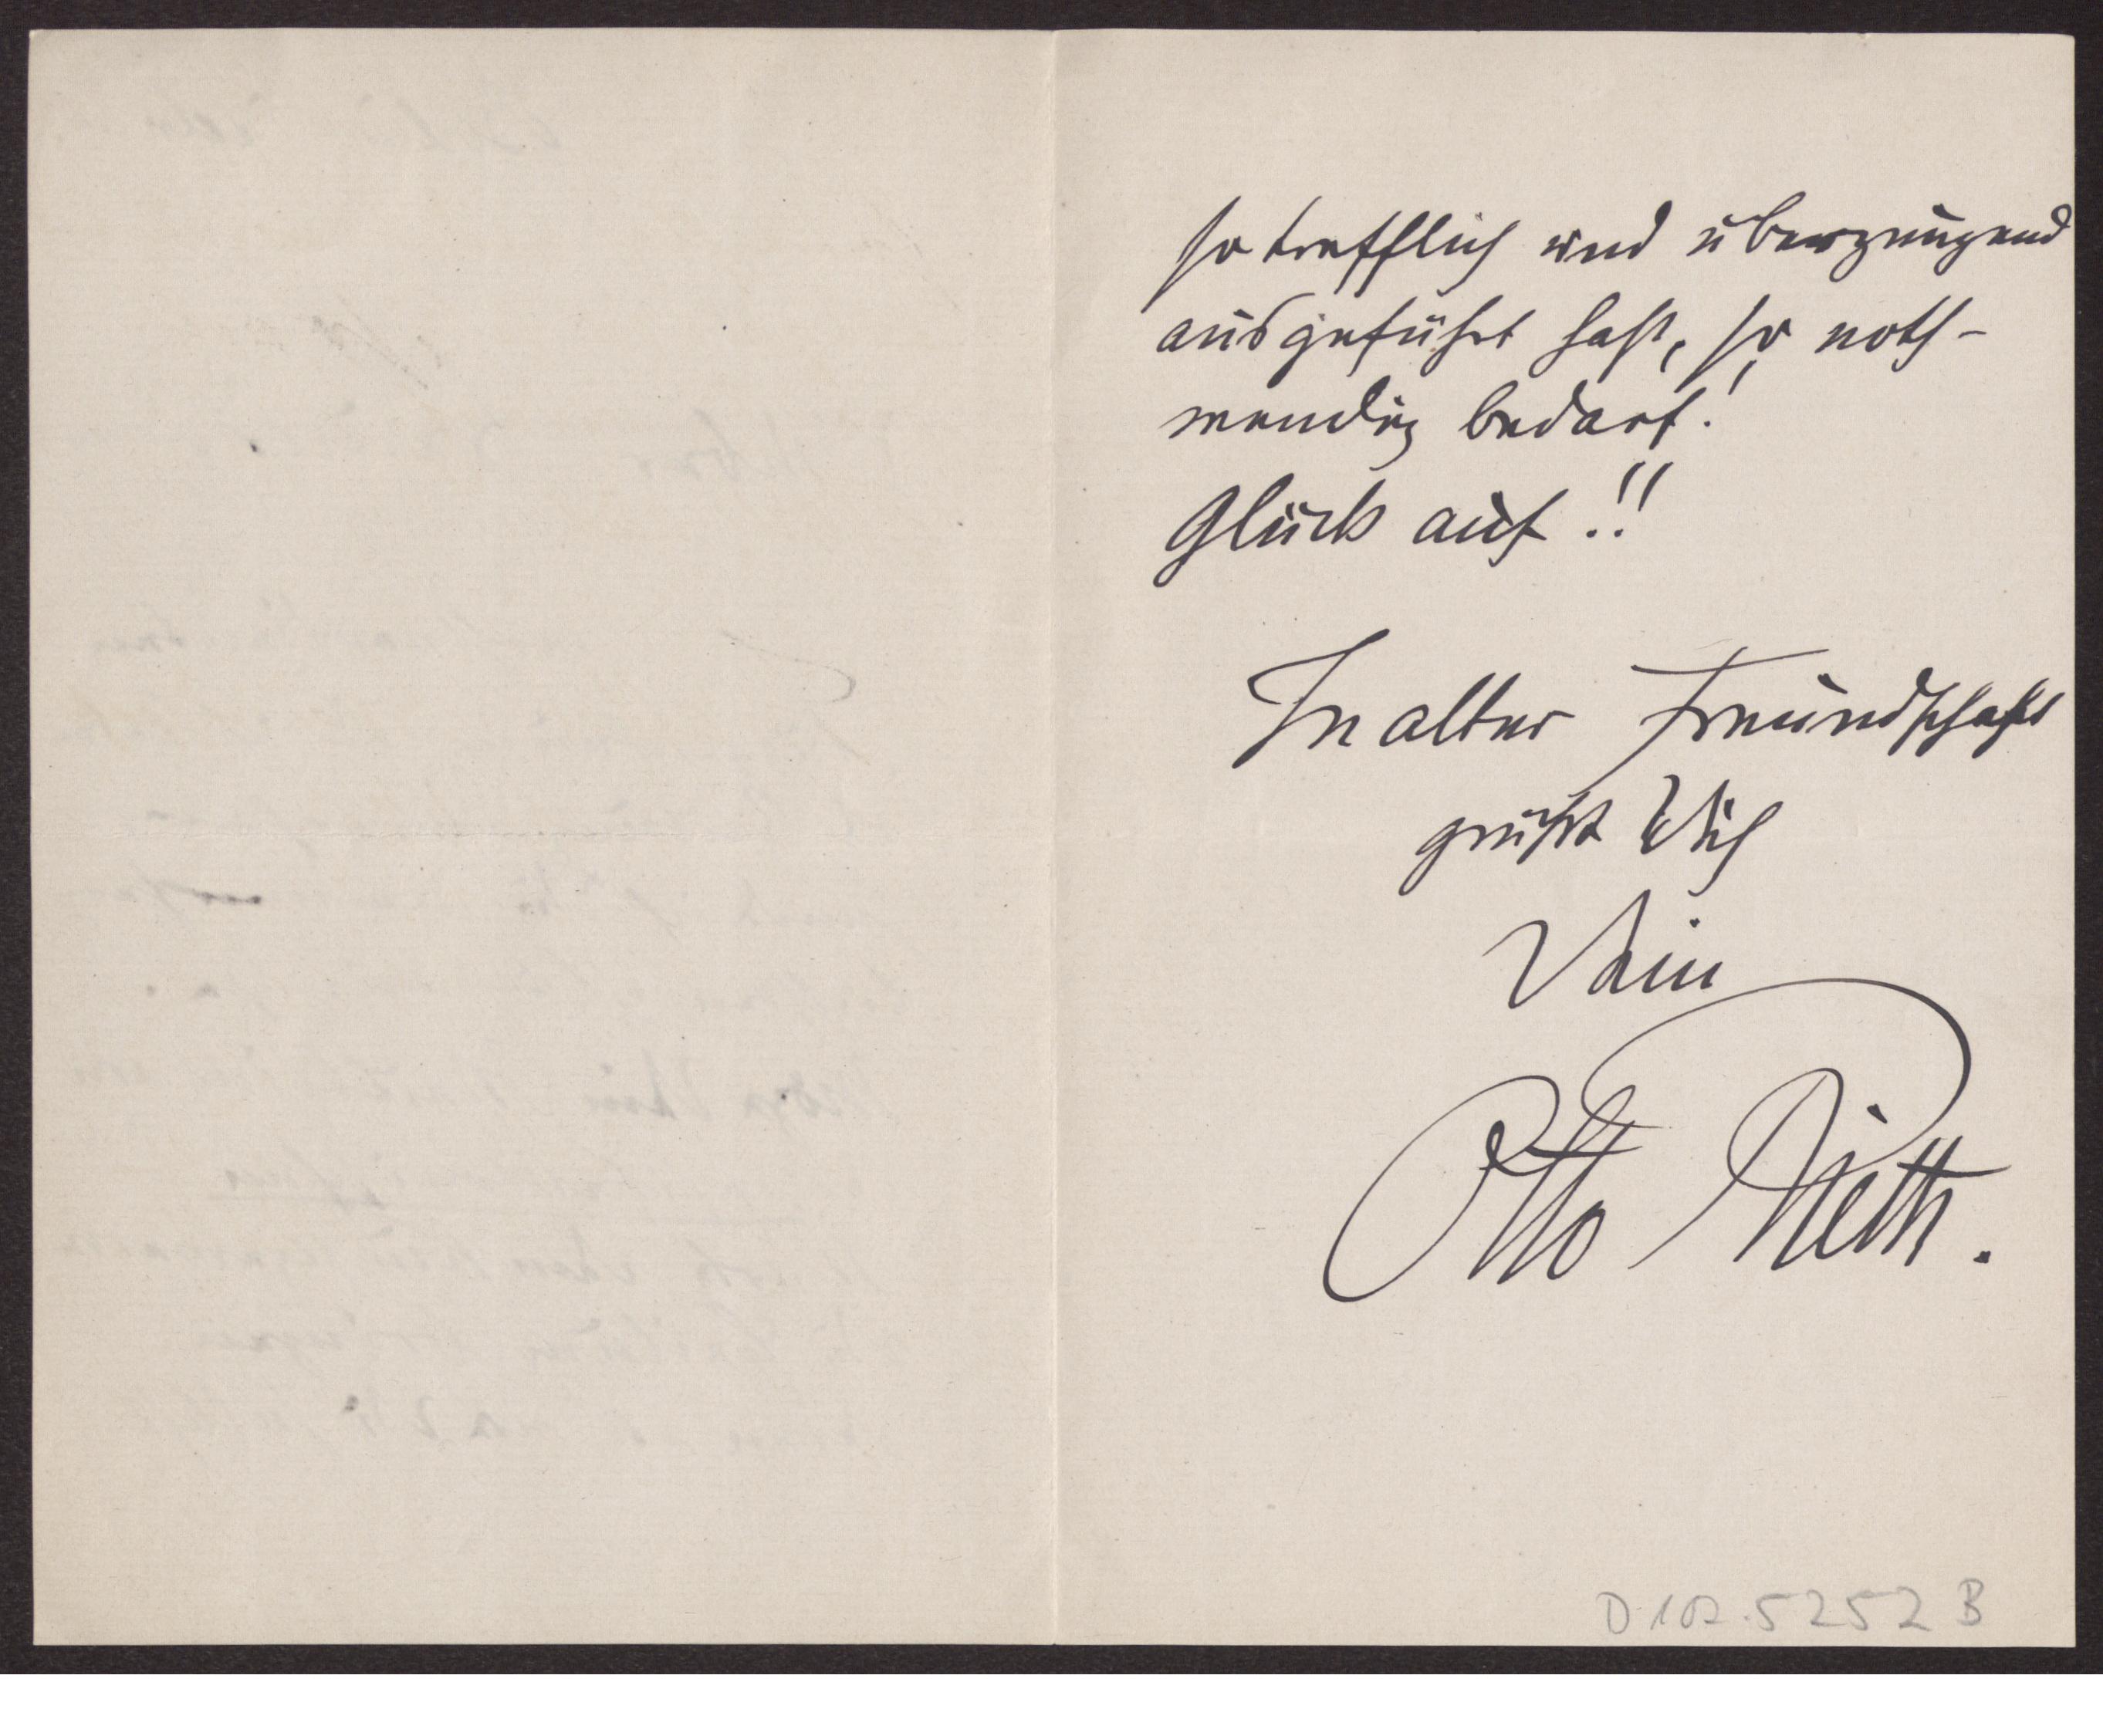 so trefflich und überzeugend
ausgeführt hast, so noth-
wendig bedarf!
Glück auf!!
In alter Freundschaft
grüßt Dich
Dein
Otto Rieth.
D 102.5252 B